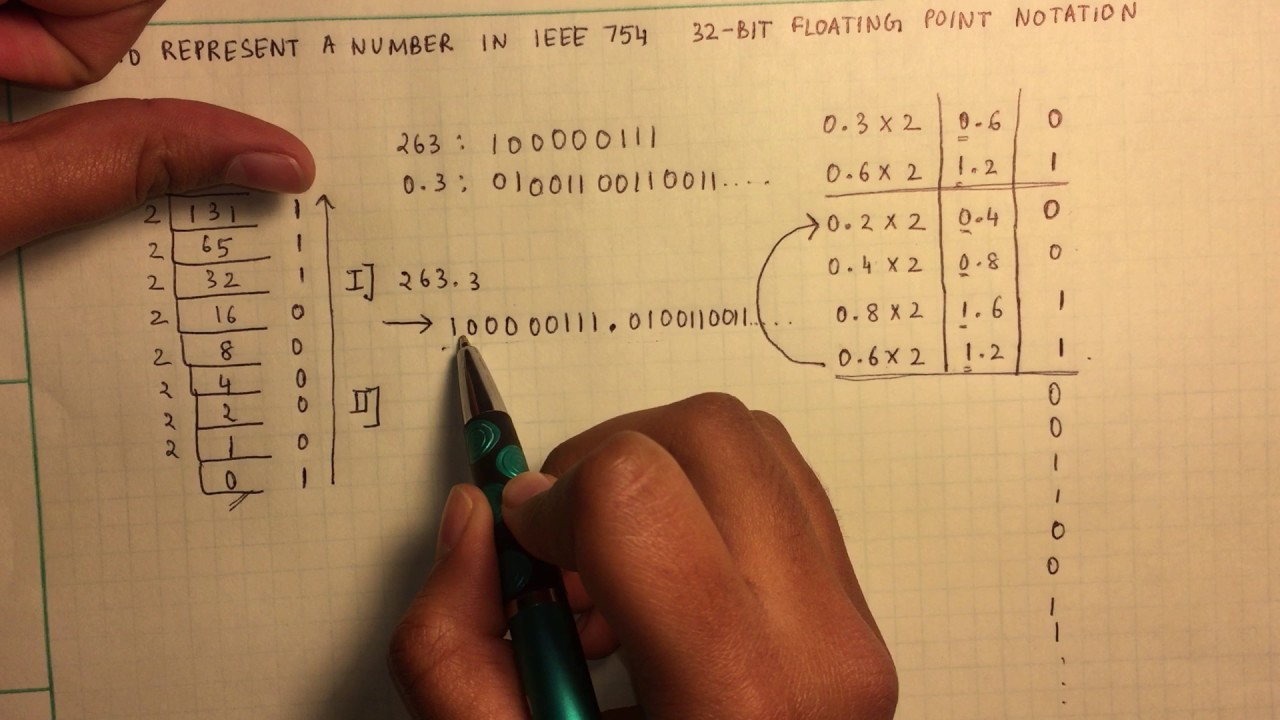 TO REPRESENT A NUMBER IN IEEE 754 32-BIT FLOATING POINT NOTATION
2 131 1
2 65 1
2 32 1
2 16 0
2 8 0
2 4 0
2 2 0
2 1 0
0 1
263 : 100000111
0.3 : 01001100110011....
I] 263.3
→ 100000111.0100110011.....
II]
0.3 × 2 0.6 0
0.6 × 2 1.2 1
0.2 × 2 0.4 0
0.4 × 2 0.8 0
0.8 × 2 1.6 1
0.6 × 2 1.2 1
0
0
1
1
0
0
1
1